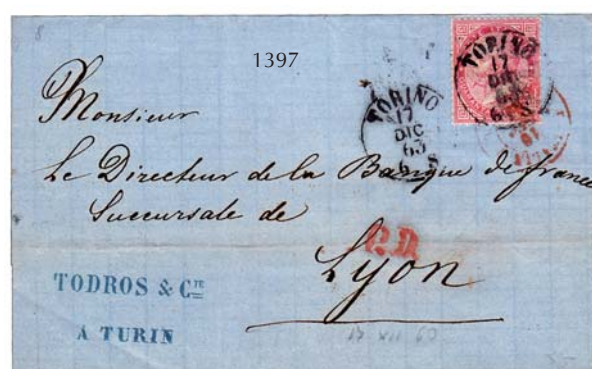 1397
TORINO
17
DIC
63
6 S
TORINO
17
DIC
63
6 S
Monsieur
Le Directeur de la Banque de france
Succursale de
P.D.
Lyon
TODROS & Cie
A TURIN
17 XII 63